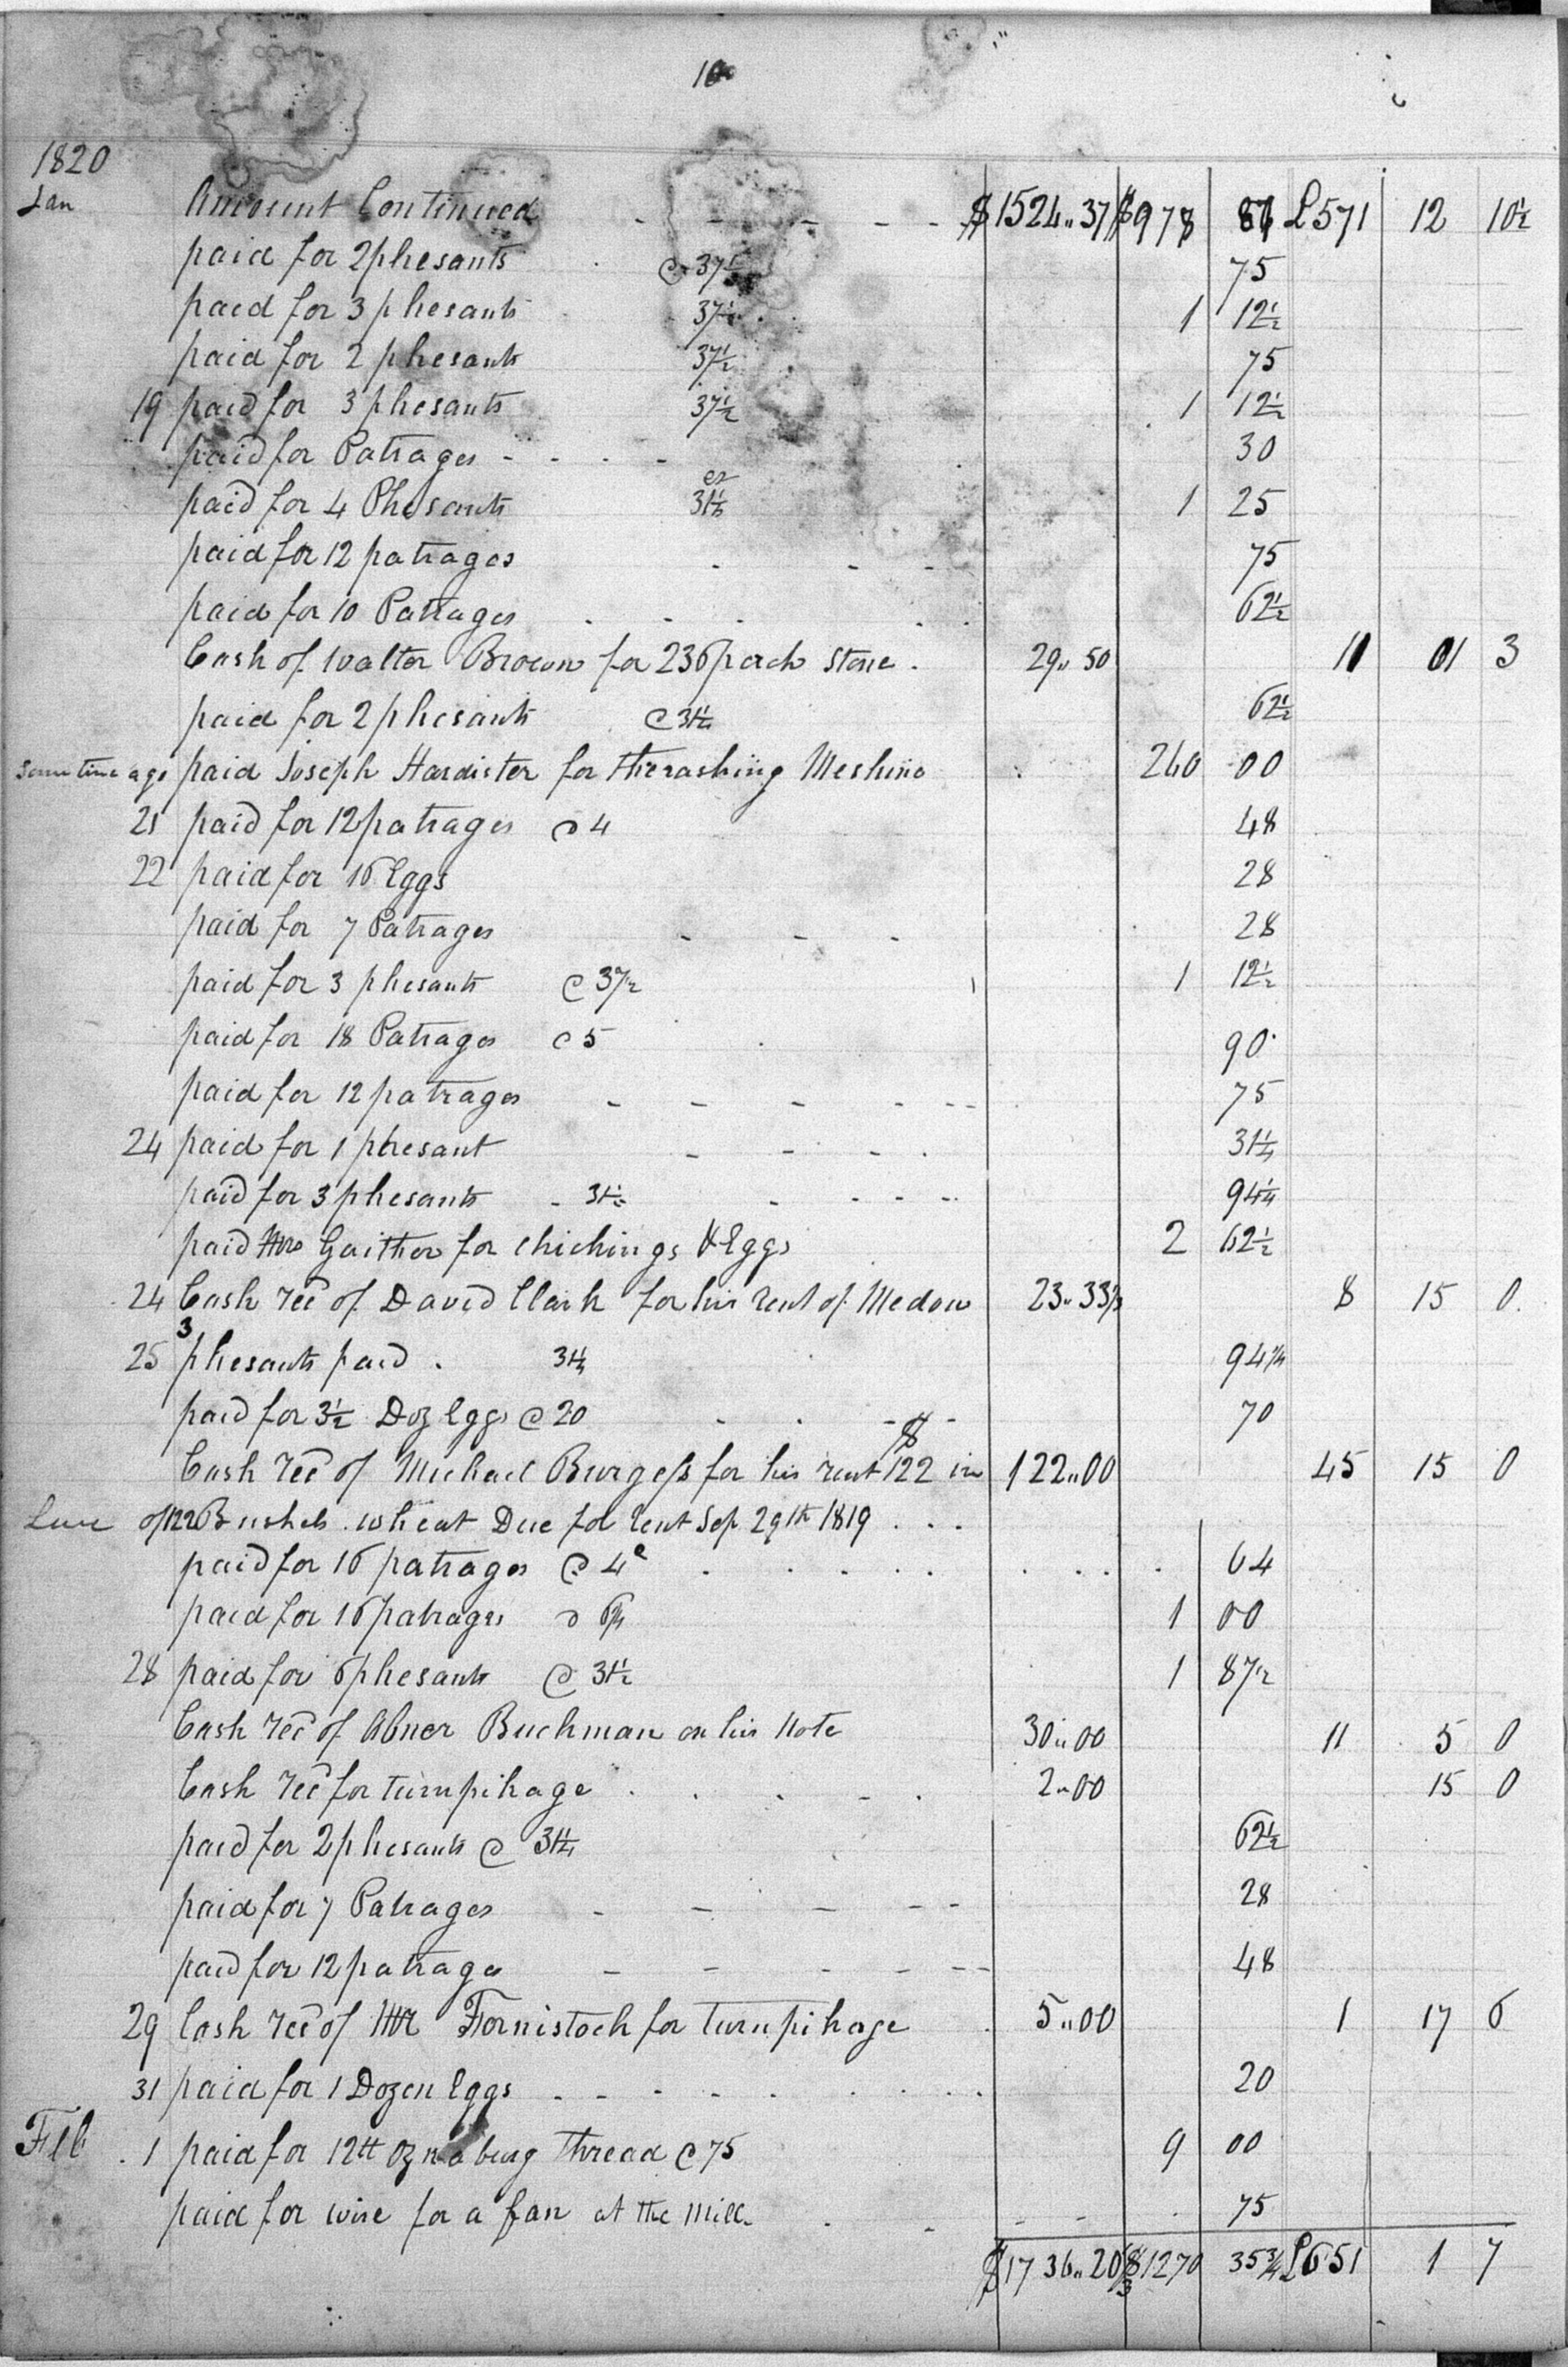 10
1820
Jan Amount Continued - - - - - $1524.. 37 $978 87 £571 12 10½
paid for 2 phesants @ 37½ 75
paid for 3 phesants 37½ 1 12½
paid for 2 phesants 37½ 75
19 paid for 3 phesants 37½ 1 12½
paid for Patrages - - - - 30
paid for 4 Phesants 31½ 1 25
paid for 12 patrages - - - 75
paid for 10 Patrages 62½
Cash of Walter Brown for 236 perch Stone . 29.. 50 11 01 3
paid for 2 phesants @ 31½ 62½
Some time ago paid Joseph Hardister for therashing Meshino 260 00
21 paid for 12 patrages @ 4 48
22 paid for 16 Eggs 28
paid for 7 Patrages - - - 28
paid for 3 phesants @ 37½ 1 12½
paid for 18 Patrages @ 5 90
paid for 12 patrages - - - - - - 75
24 paid for 1 phesant - - - . 31½
paid for 3 phesants - 31½ - - - - 94½
paid Mrs Gaither for Chickings & Eggs 2 62½
24 Cash recd of David Clark for his rent of Medow 23.. 33⅓ 8 15 0
25 3 phesants paid . 31½ 94½
paid for 3½ Doz Eggs @ 20 70
Cash recd of Michael Burgess for his rent $122 in 122..00 45 15 0
Lure of 122 Bushels wheat Due for rent Sep 29th 1819 . . .
paid for 16 patrages @ 4c 64
paid for 16 patrages @ 6¼ 1 00
28 paid for 6 phesants @ 31½ 1 87½
Cash recd of Abner Buckman on his Note 30..00 11 5 0
Cash recd for turnpikage 2..00 15 0
paid for 2 phesants @ 31½ 62½
paid for 7 Patrages - - - - - 28
paid for 12 patrages - - - - - - 48
29 Cash recd of Mr Fornistock for turnpikage 5..00 1 17 6
31 paid for 1 Dozen Eggs - - - - 20
Feb 1 paid for 12 tt Oznaburg thread @ 75 9 00
paid for wire for a fan at the Mill 75
$1736.. 20⅓ $1270 35¾ £651 1 7